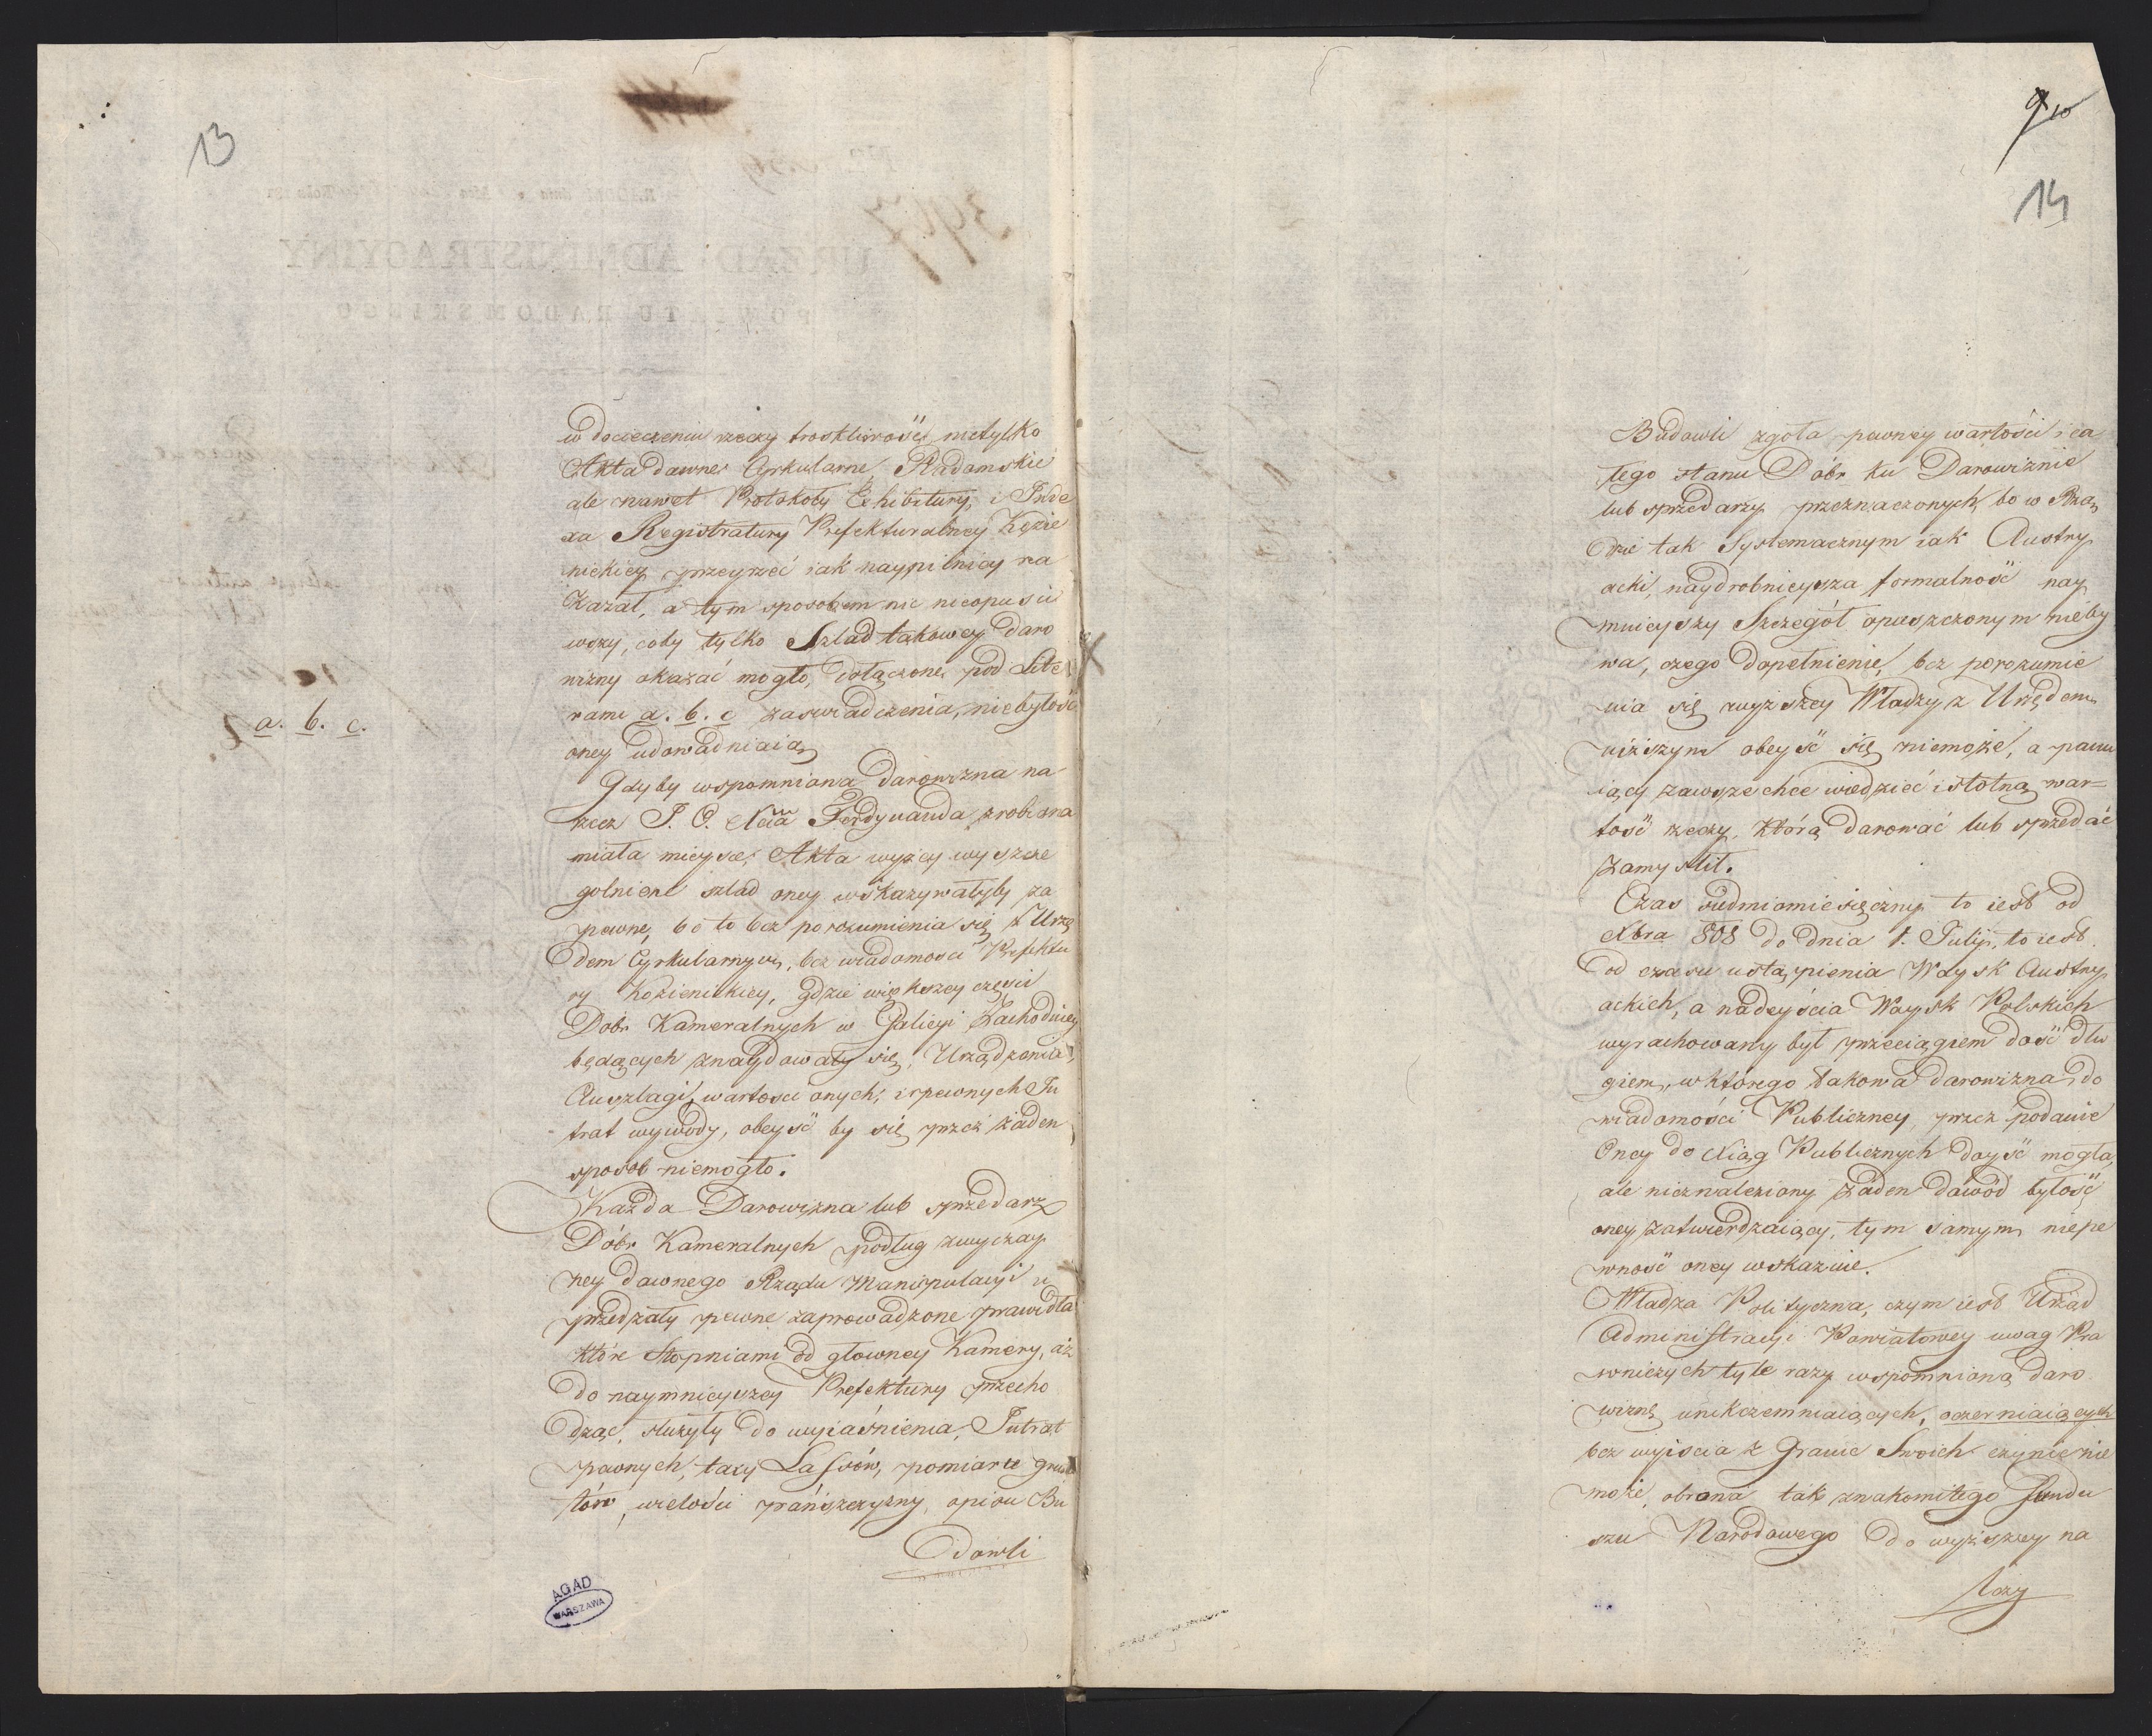 13
a. b. c.
w docieczeniu rzeczy troskliwości, nietylko
Akta dawne Cyrkularne Radomskie
ale nawet Protokoły Exhibitury, i Inde
xa Registratury Prefekturalney Kozie
nickiey przeyrzeć iak naypilniey na
kazał, a tym sposobem nic nieopuści
wszy, coby tylko Szlad takowey daro
wizny okazać mogło, dołączone pod Lite
rami a. b. c zaswiadczenia, niebytość
oney udowadniaią
Gdyby wspomniona darowizna na
rzecz J. O. Xcia Ferdynanda zrobiona
miała mieysce, Akta wyżey wyszcze
golnione szlad oney wskazywałyby za
pewne, bo to bez porozumienia się z Urzę
dem Cyrkularnym, bez wiadomosci Prefektu
ry Kozienickiey, gdzie większey części
Dobr Kameralnych w Galicyi Zachodniey
będących znaydowały się, Urządzenia,
Auszlagi, wartosci onych, i rpewnych In
trat wywody, obeyść by się przez żaden
sposob niemogło.
Każda Darowizna lub sprzedarz
Dóbr Kameralnych podług zwyczay
ney dawnego Rządu Manipulacyi u
przedzały pewne zaprowadzone prawidła
które stopniami od głowney Kamery, aż
do naymnieyszey Prefektury przecho
dząc, służyły do wyiaśnienia, Intrat
pewnych, taxy Lassów, pomiaru grun
tów, wielości pańszczyzny, opisu Bu
dowli
AGAD
WARSZAWA
9 10
14
Budowli zgoła pewney wartości i ca
łego stanu Dóbr ku Darowiznie
lub sprzedarzy przeznaczonych, bo w Rzą
dzie tak Systemacznym iak Austry
acki, naydrobnieysza formalność nay
mnieyszy Szczegół opuszczonym nieby
wa, czego dopełnienie, bez porozumie
nia się wyzszey Władzy z Urzędem
niższym obeyść się niemoże, a panu
iący zawsze chce wiedzieć istotną war=
tość rzeczy, którą darować lub sprzedać
zamyslił.
Czas siedmiomiesięczny to iest od
Xbra 808 do dnia 1. Julij, to iest
od czasu ustąpienia Woysk Austry
ackich, a nadeyścia Woysk Polskich
wyrachowany był przeciągiem dość dłu
giem, w którego takowa darowizna do
wiadomości Publiczney przez podanie
Oney do Xiąg Publicznych doyść mogła,
ale nieznaleziony żaden dowód bytość
oney zatwierdzaiący, tym samym niepe
wność oney wskazuie.
Władza Polityczna, czym iest Urząd
Administracyi Powiatowey uwag Pra
wniczych tyle razy wspomnioną daro
wiznę unikczemniaiących, oczerniaiących
bez wyiścia z Granic Swoich czynić nie
może, obrona tak znakomitego fundu
szu Narodowego do wyższey na
leży